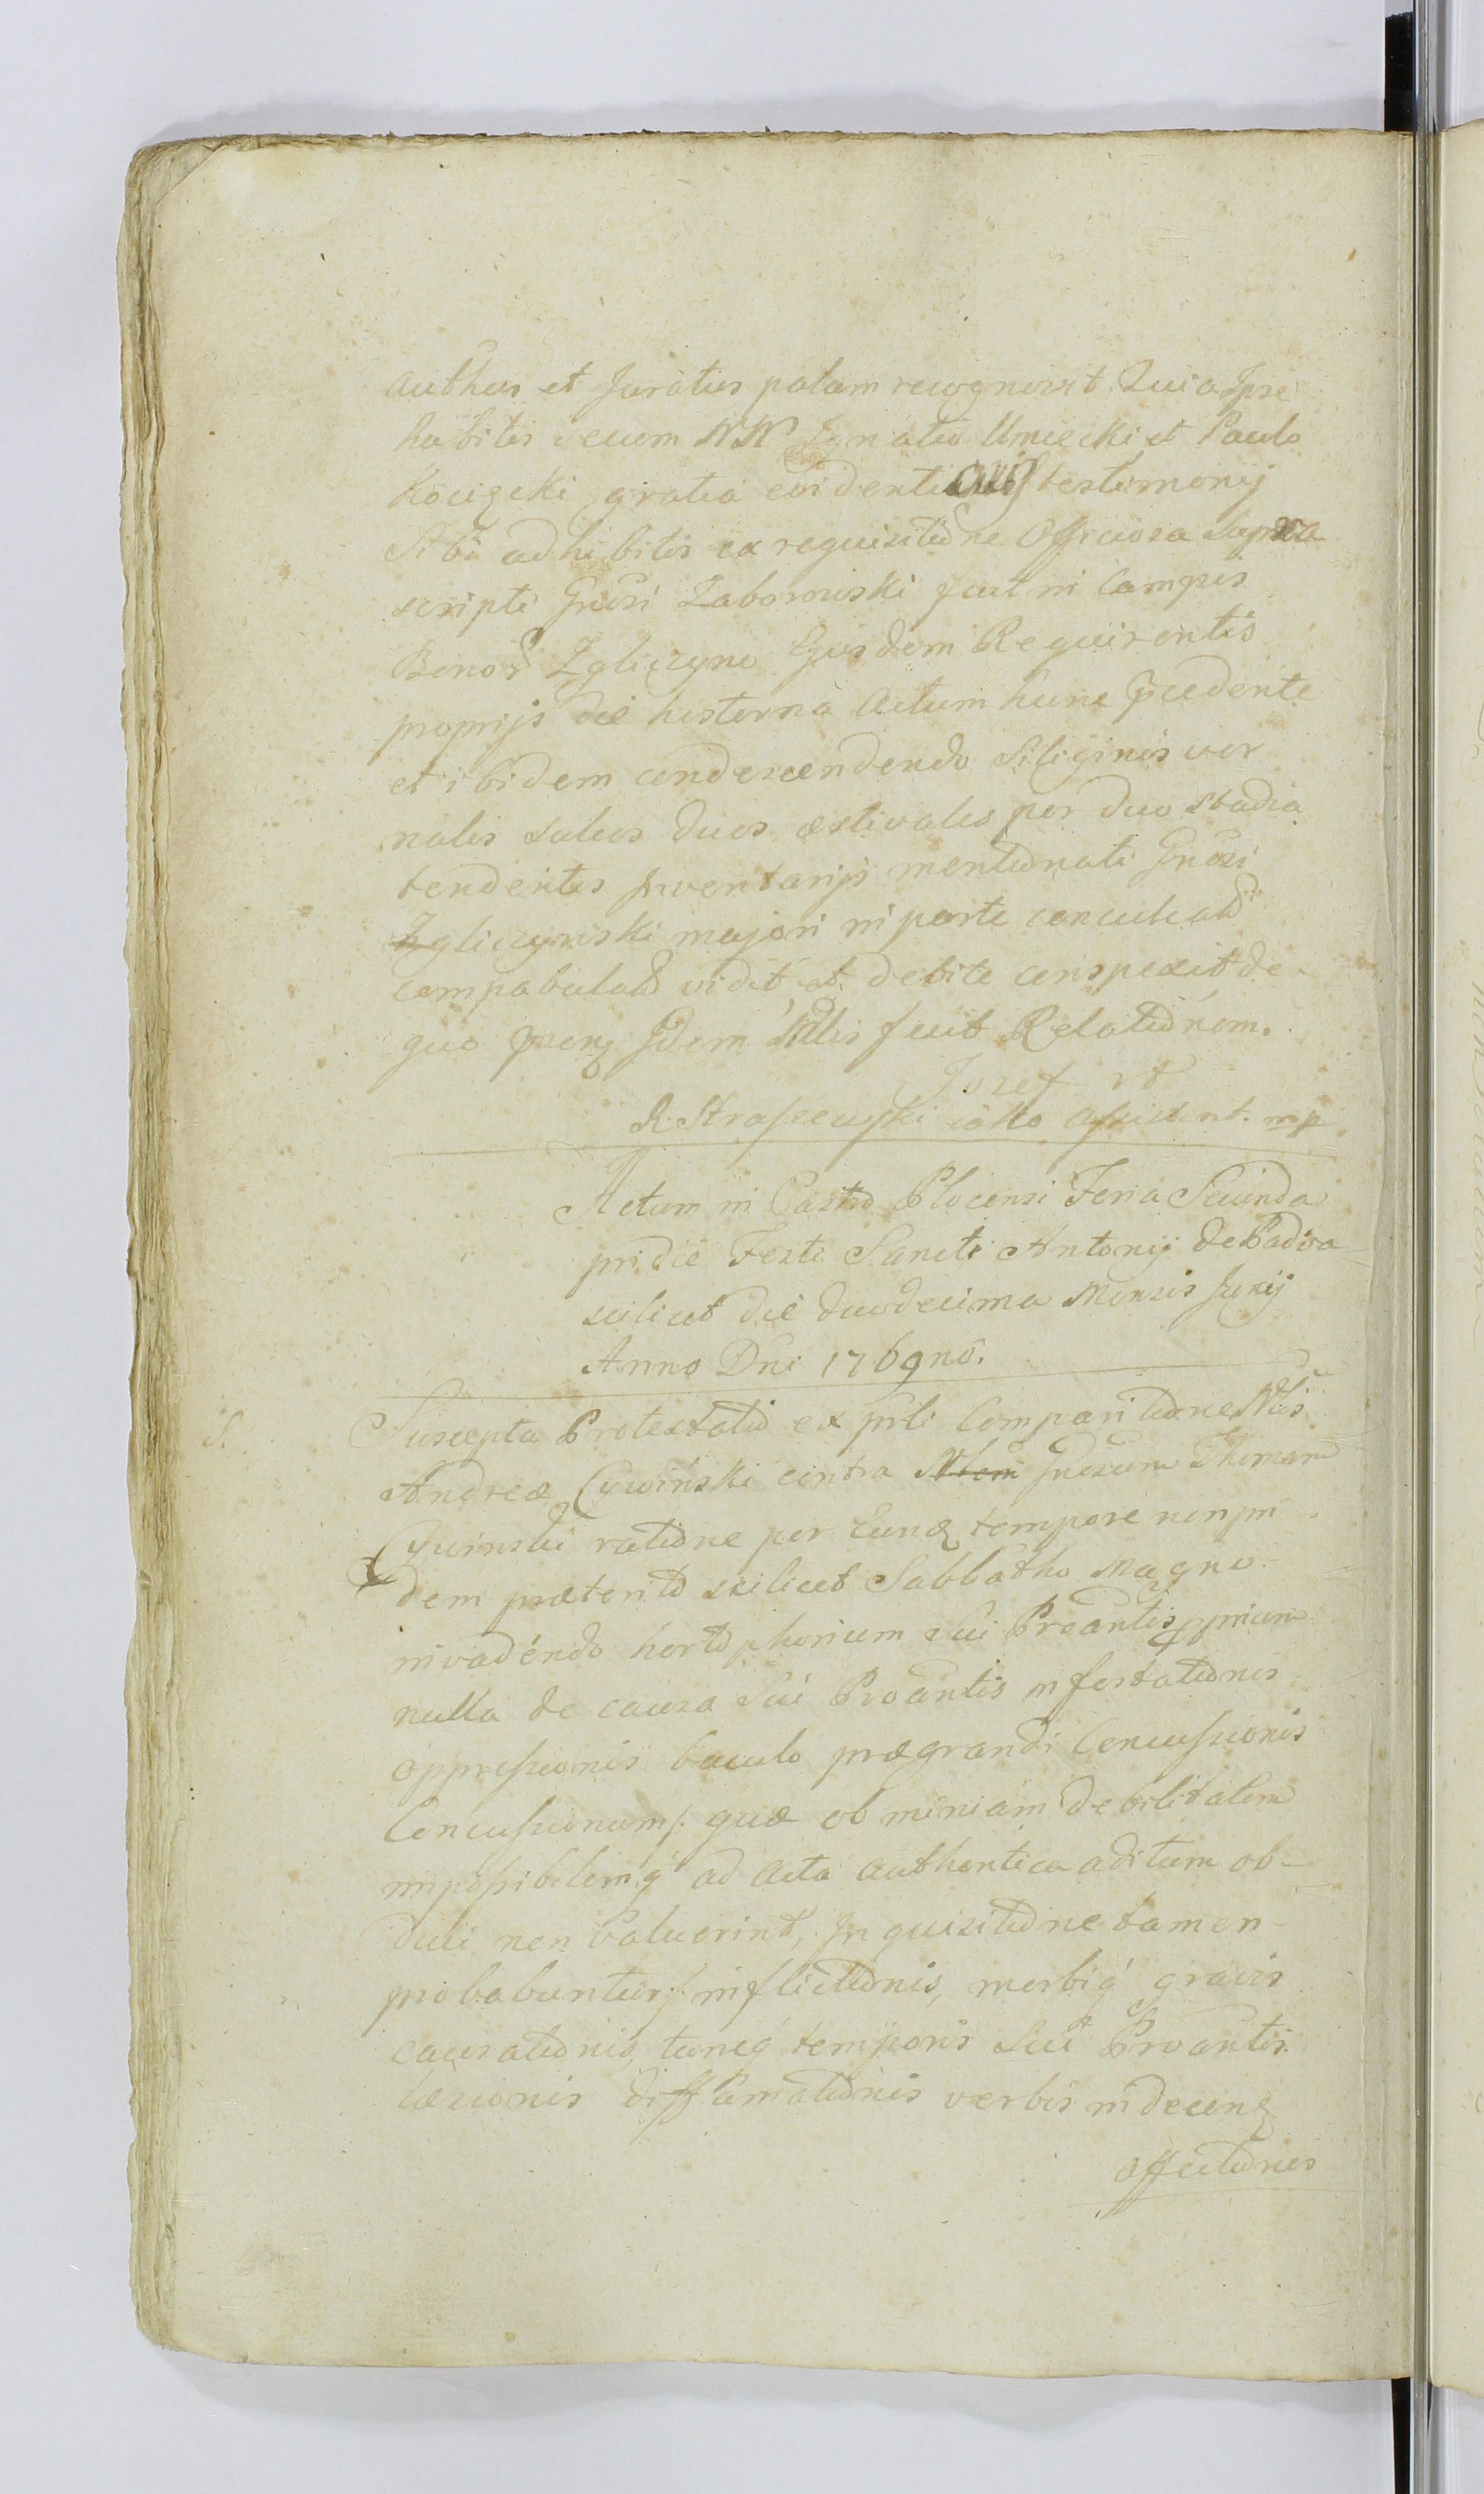 authus et Juratus palam recognovit. Quia Ipse
habitis secum NN Ignatio Umiecki et Paulo
Kocięcki gratia evidentioris testimonij
Sibi adhibitis ex requisitione Officiosa Supra
scripti Gnosi Zaborowski fuit in Campis
Bonor Zgliczyno Ejusdem Requirentis
proprijs die hesterna Actum hunc pcedente
et ibidem condescendendo Siliginis ver
nalis sulcos duos æstivales per duo stadia
tendentes Inventarijs mentionati Gnosi
Zgliczynski majori in parte conculcato
compabulato vidit et debite conspexit de
quo psens Idem Mlis fecit Relationem.
Jozef
R. Straszewski iako assistent. mp
Actum in Castro Plocensi Feria Secunda
pridie Festi Sancti Antonij de Padva
scilicet die duodecima Mensis Junij
Anno Dni 1769no.
S. Suscepta Protestatio ex psnli Comparitione Nlis
Andreæ Cywiński contra Nlem Gnosum Thomam
Cywinski ratione per Eunđ tempore non pri
dem præterito scilicet Sabbatho Magno
invadendo horto phoricum Sui Proantis pprium
nulla de causa Sui Proantis infestationis
oppressionis baculo prægrandi Concussionis
Concussionum /: quæ ob nimiam debilitatem
impossibilemq ad Acta authentica aditum ob-
duci non valuerint, Inquisitione tamen
probabuntur :/ inflictionis, morbiq gravis
causationis, tuncq temporis Sui Proantis
læsionis diffamationis verbis indecend
affectionis